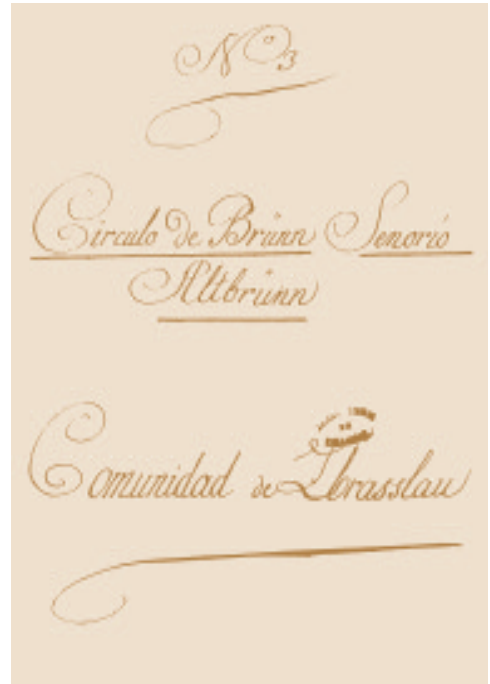 Nº 3
Circulo de Brünn Senorio
Altbrünn
Comunidad de